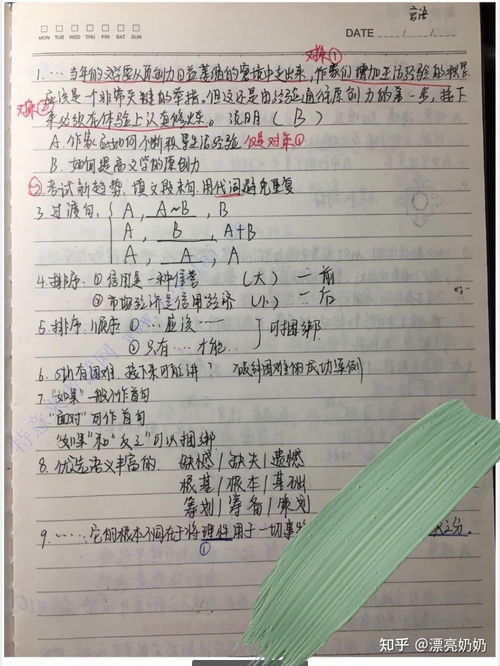 言语
MON TUE WED THU FRI SAT SUN
DATE / /
对策①
1.……当年的文学要从原创力日益萎缩的窘境中走出来,作家们增加生活经验的积累
应该是一个非常关键的举措。但这还是由经验通往原创力的第一步,接下
对策②
来必须在体验上认真修炼。说明(B)
A.作家应如何不断积累生活经验 仅是对策①
B.如何提高文学的原创力
2.考试新趋势:填文段末句,用代词避免重复
3.过渡句,
A,A~B,B
A,B,A+B
A,A,A
4.排序.①信用是一种信誉 (大) 一前
②市场经济是信用经济 (小) 一后
5.排序.顺序①…应该……
②只有…才能…
可捆绑
6.有困难,接下来可能讲?破解困难的成功案例
7."如果"一般不作首句
"面对"可作首句
"如果"和"反之"可以捆绑
8.优选语义丰富的. 缺憾/缺失/遗憾
根基/根本/基础
筹划/筹备/策划
9.……它的根本不同在于将理性用于一切事
①
知乎 @漂亮奶奶